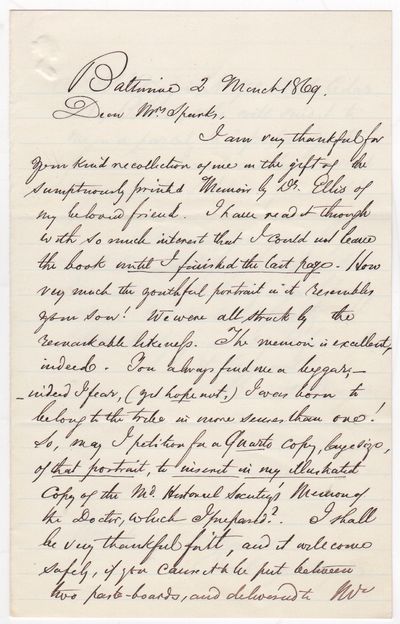 Baltimore 2 March 1869.
Dear Mrs Sparks,
I am very thankful for
your kind recollection of me in the gift of the
sumptuously printed Memoir by Dr. Ellis of
my beloved friend. I have read it through
with so much interest that I could not leave
the book until I finished the last page. How
very much the youthful portrait in it resembles
your son! We were all struck by the
remarkable likeness. The memoir is excellent,
indeed. You always find me a beggar,—
—indeed I fear, (yet hope not,) I was born to
belong to the tribe in more senses than one!
So, may I petition for a Quarto copy, large size,
of that portrait, to insert in my illustrated
Copy of the Md. Historical Society's Memoir of
the Doctor, which I prepared? I shall
be very thankful for it, and it will come
safely, if you cause it to be put between
two paste-boards, and delivered to Mr